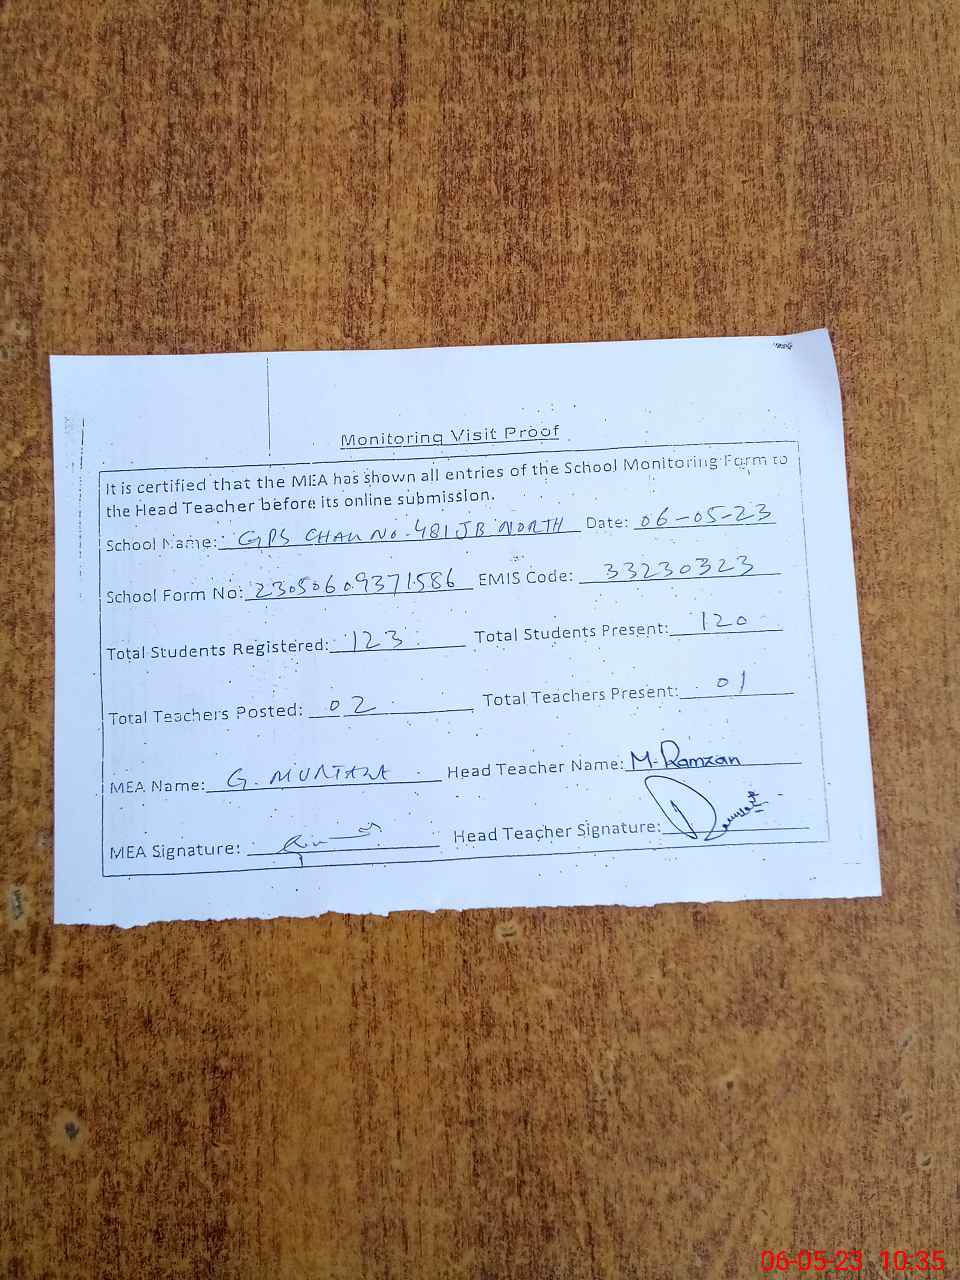 Monitoring Visit Proof
It is certified that the MEA has shown all entries of the School Monitoring Form to
the Head Teacher before its online submission.
School Name: GPS CHAK No. 481 JB NORTH Date: 06-05-23
School Form No: 23050609371586 EMIS Code: 33230323
Total Students Registered: 123 Total Students Present: 120
Total Teachers Posted: 02 Total Teachers Present: 01
MEA Name: G. MURTAZA Head Teacher Name: M. Ramzan
MEA Signature: Head Teacher Signature:
06-05-23 10:35